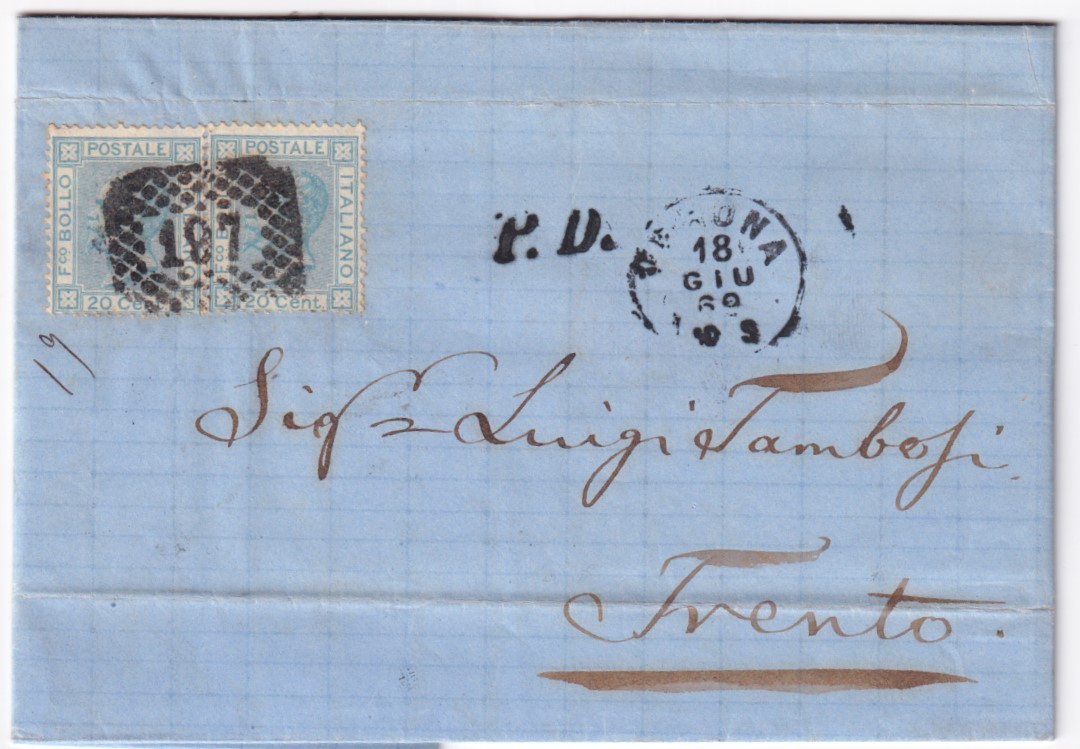 POSTALE POSTALE
F.co BOLLO
ITALIANO
187
20 Cent. 20 Cent.
P.D.
18
GIU
69
19
Sigr Luigi Tambosi
Trento.